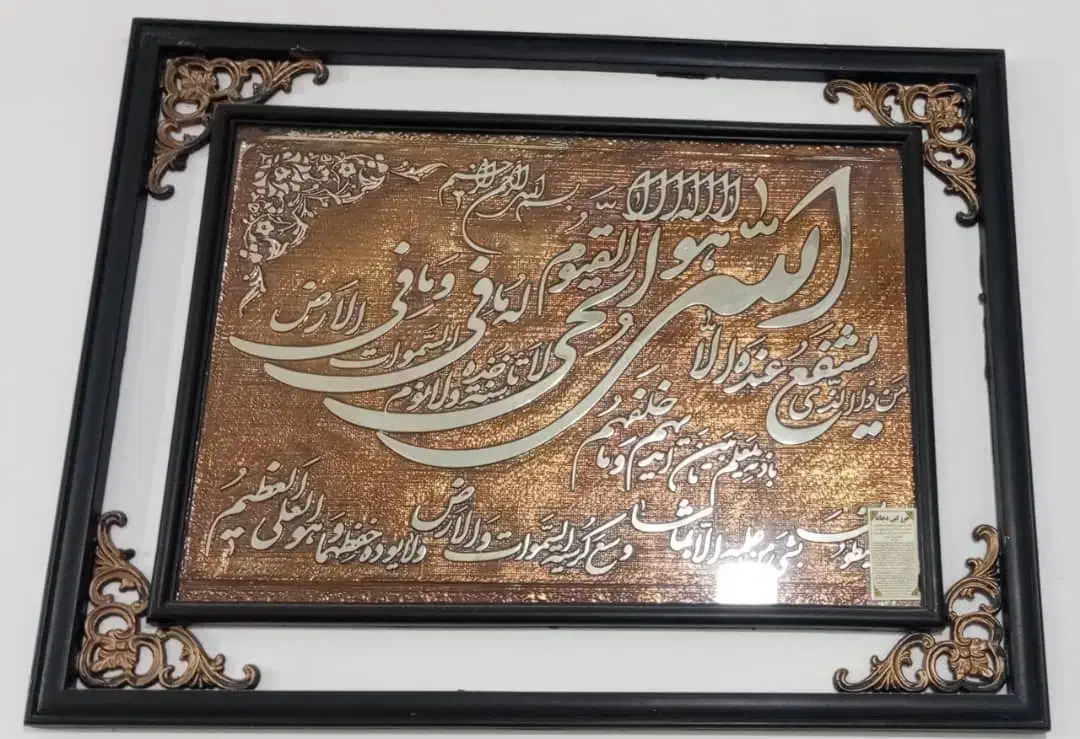 بسم الله الرحمن الرحیم
الله لا اله الا هو الحی القیوم
لا تاخذه سنة ولا نوم
له ما فی السموات و ما فی الارض
من ذا الذی یشفع عنده الا
باذنه یعلم ما بین ایدیهم و ما خلفهم
ولا یحیطون
بشیء من علمه الا بما شاء
وسع کرسیه السموات والارض
ولا یوده حفظهما و هو العلی العظیم
حرز ابی دجانه